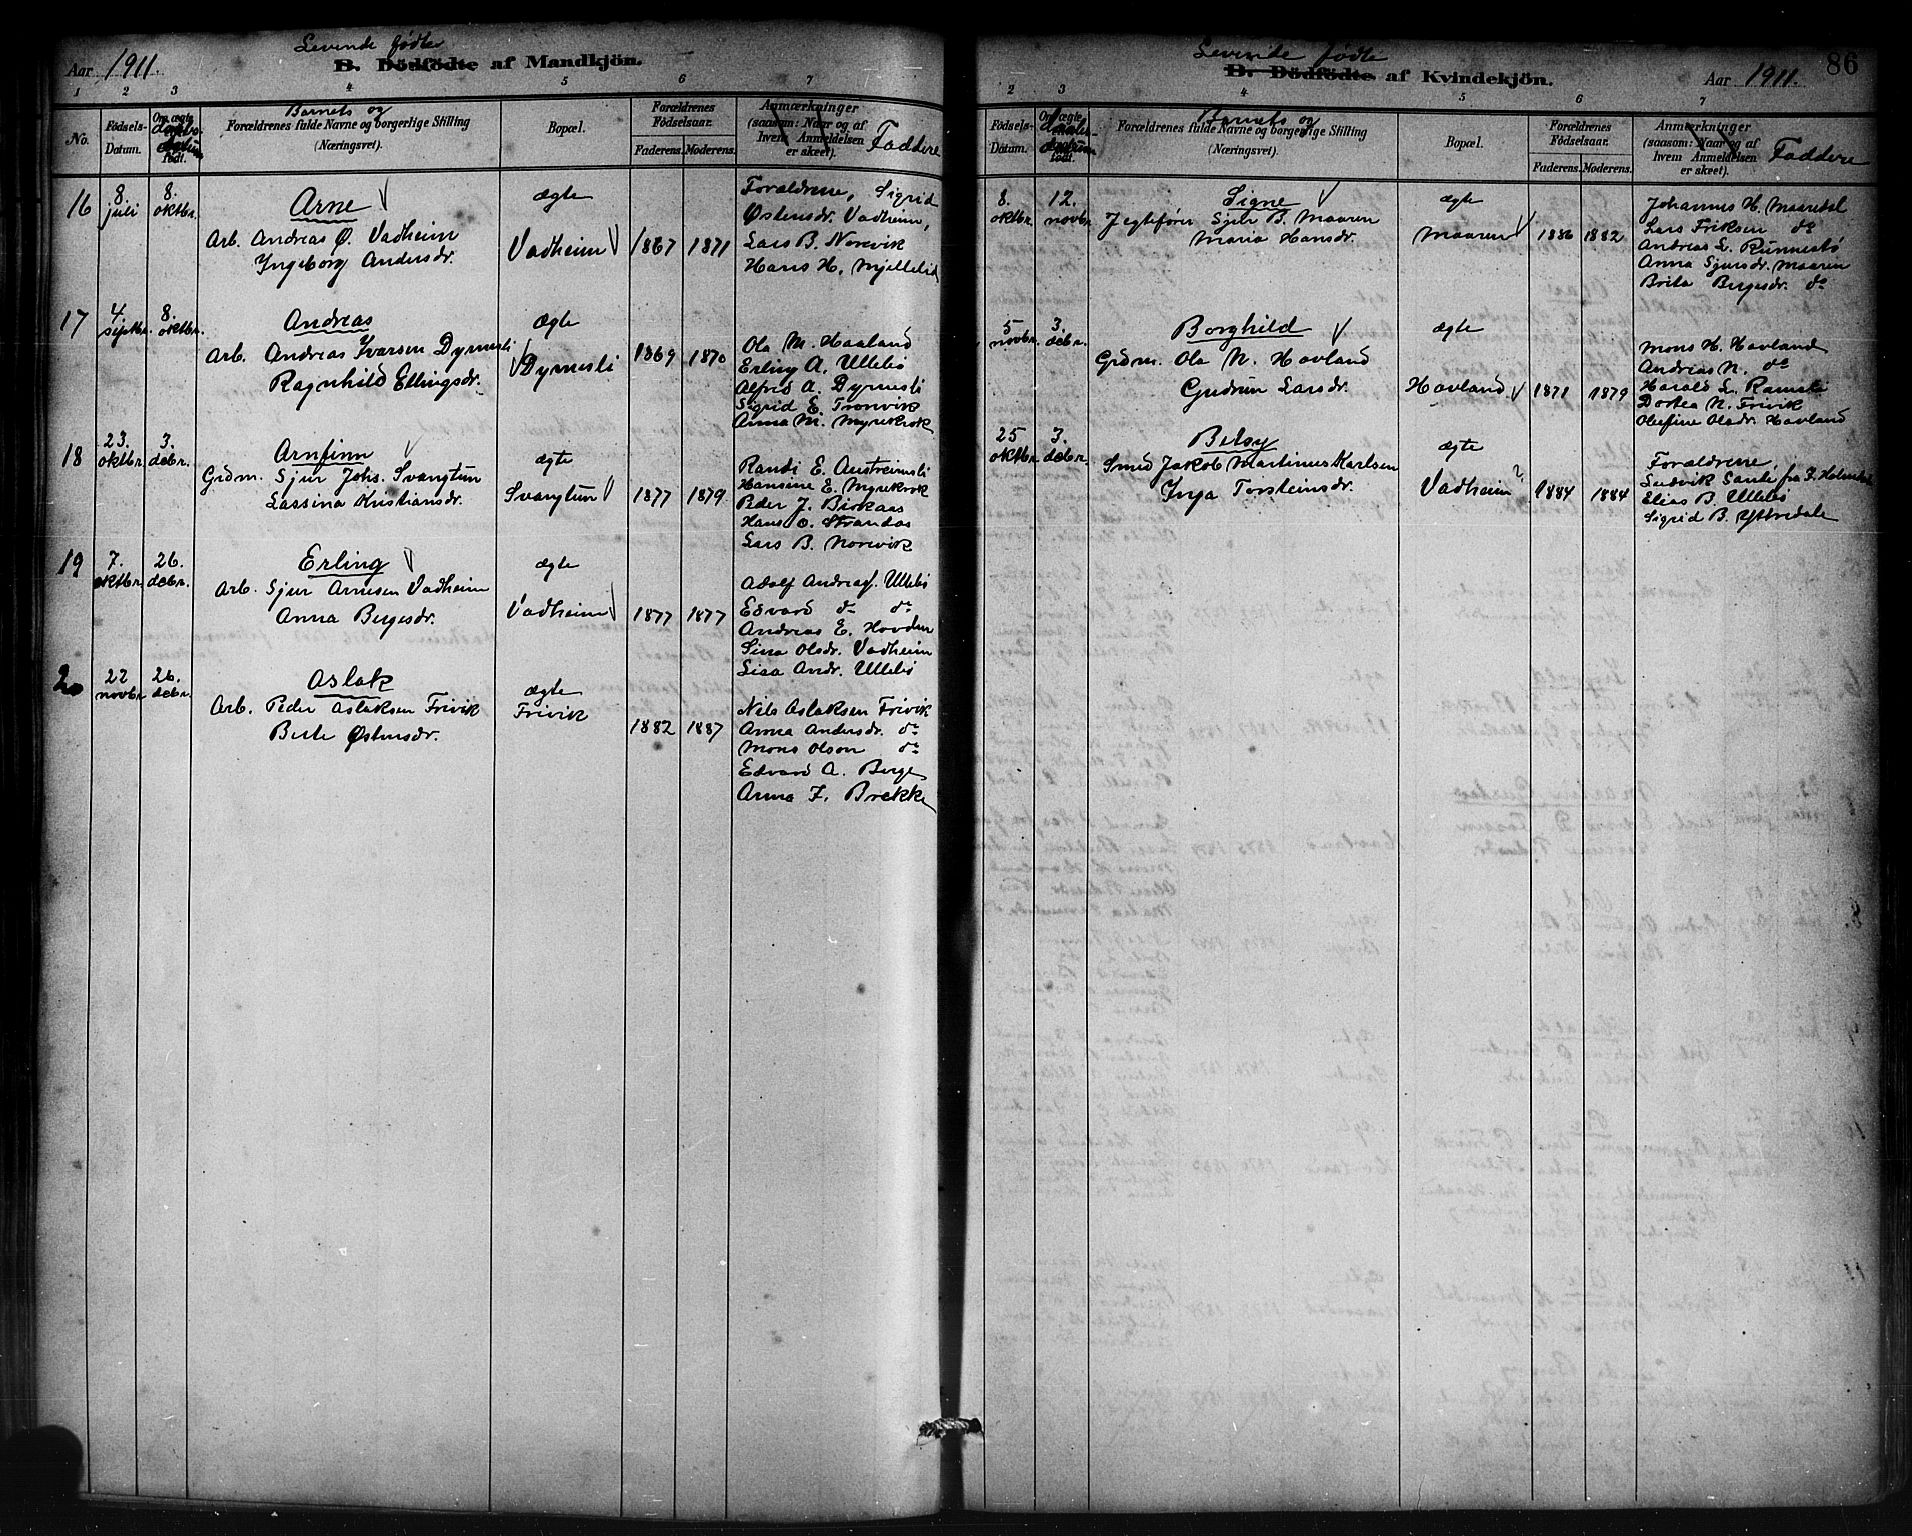 Aar 1911.
Levende fødte
B. Dödfödte af Mandkjön.
1 2 3 4 5 6 7
No.
Födsels-Datum.
Daabsdatum
Barnets og
Forældrenes fulde Navne og borgerlige Stilling
(Næringsvei).
Bopæl.
Forældrenes Födselsaar.
Faderens. Moderens.
Anmærkninger
(saasom: Naar og af
hvem Anmeldelsen
er skeet).
Faddere
16
8. juli
8. oktbr.
Arne
Arb. Andreas Ø. Vadheim
Ingeborg Andersdr.
ægte
Vadheim
1867 1871
Forældrene, Sigrid
Østensdr. Vadheim,
Lars B. Norevik
Hans H. Mjellelid
17
4. septbr.
8. oktbr.
Andreas
Arb. Andreas Ivarsen Dyrnesli
Ragnhild Ellingsdr.
ægte
Dyrnesli
1869 1870
Ola M. Haaland
Erling A. Ullebø
Alfred A. Dyrnesli
Sigrid E. Tronvik
Anna M. Myrekrok
18
23. oktbr.
3. debr.
Arnfinn
Grdm. Sjur Johs. Svangtun
Lassina Kristiansdr.
ægte
Svangtun
1877 1879
Randi E. Austreimsli
Hansine E. Myrekrok
Peder J. Birkaas
Hans O. Strandos
Lars B. Norevik
19
7. oktbr.
26. debr.
Erling
Arb. Sjur Arnesen Vadheim
Anna Bergesdr.
ægte
Vadheim
1877 1877
Adolf Andreas. Ullebø
Edvard do do
Andreas E. Hovden
Sina Olsdr. Vadheim
Lisa Andr. Ullebø
20
22 novbr.
26. debr.
Aslak
Arb. Peder Aslaksen Frivik
Berte Østensdr.
ægte
Frivik
1882 1887
Nils Aslaksen Frivik
Anna Andersdr. do
Mons Olson do
Edvard A. Berge
Anna F. Brekke
Levende fødte
B. Dödfödte af Kvindekjön.
Aar 1911.
86
2 3 4 5 6 7
Födsels-Datum.
Daabsdatum
Barnets og
Forældrenes fulde Navne og borgerlige Stilling
(Næringsvei).
Bopæl.
Forældrenes Födselsaar.
Faderens. Moderens.
Anmærkninger
(saasom: Naar og af
hvem Anmeldelsen
er skeet).
Faddere
8. oktbr.
12. novbr.
Signe
Jegtefører Sjur B. Maaren
Maria Hansdr.
ægte
Maaren
1886 1882
Johannes H. Maaredal
Lars Eriksen do
Andreas L. Runnestø
Anna Sjursdr. Maaren
Brita Bergesdr. do
5 novbr.
3. debr.
Borghild
Grdm. Ola N. Hovland
Gudrun Larsdr.
ægte
Hovland
1871 1879
Mons H. Hovland
Andreas N. do
Harald L. Ramsli
Dortea N. Frivik
Olefine Olsdr. Hovland
25 oktbr.
3. debr.
Betsy
Smed Jakob Martinus Karlsen
Inga Torsteinsdr.
ægte
Vadheim?
1884 1884
Forældrene
Ludvik Sande fra
Elias B. Ullebø
Sigrid B. Ytredale